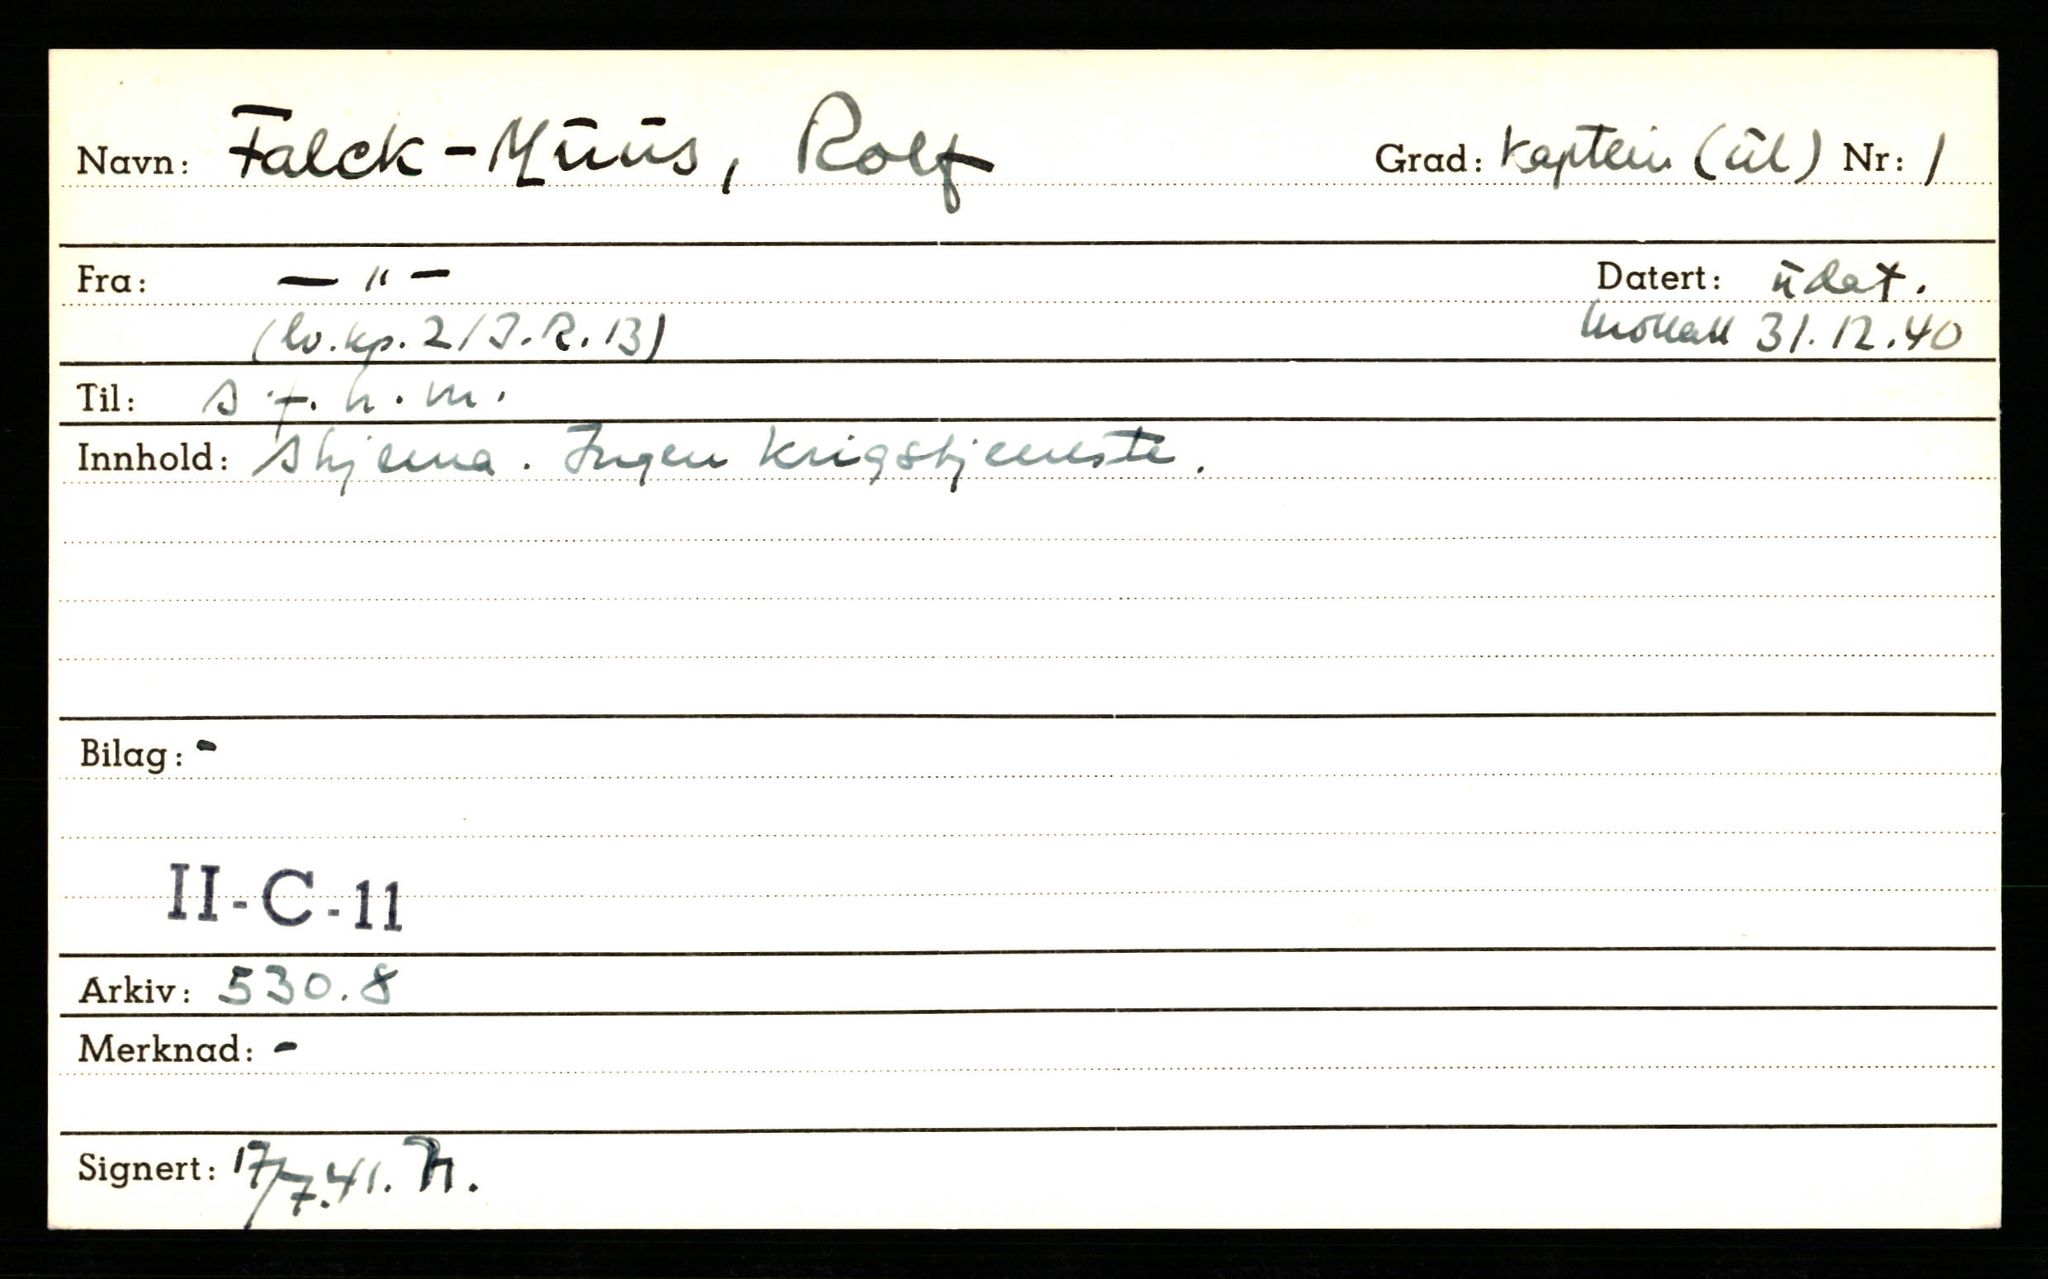 Navn: Falck-Muus, Rolf Grad: Kaptein (ul) Nr: 1
Fra: — " — Datert: udat.
(lv.kp. 2/I.R.13) Mottatt 31.12.40
Til: s.f.h.m.
Innhold: Skjema. Ingen krigstjeneste.
Bilag: -
II-C-11
Arkiv: 530.8
Merknad: -
Signert: 17/7.41.